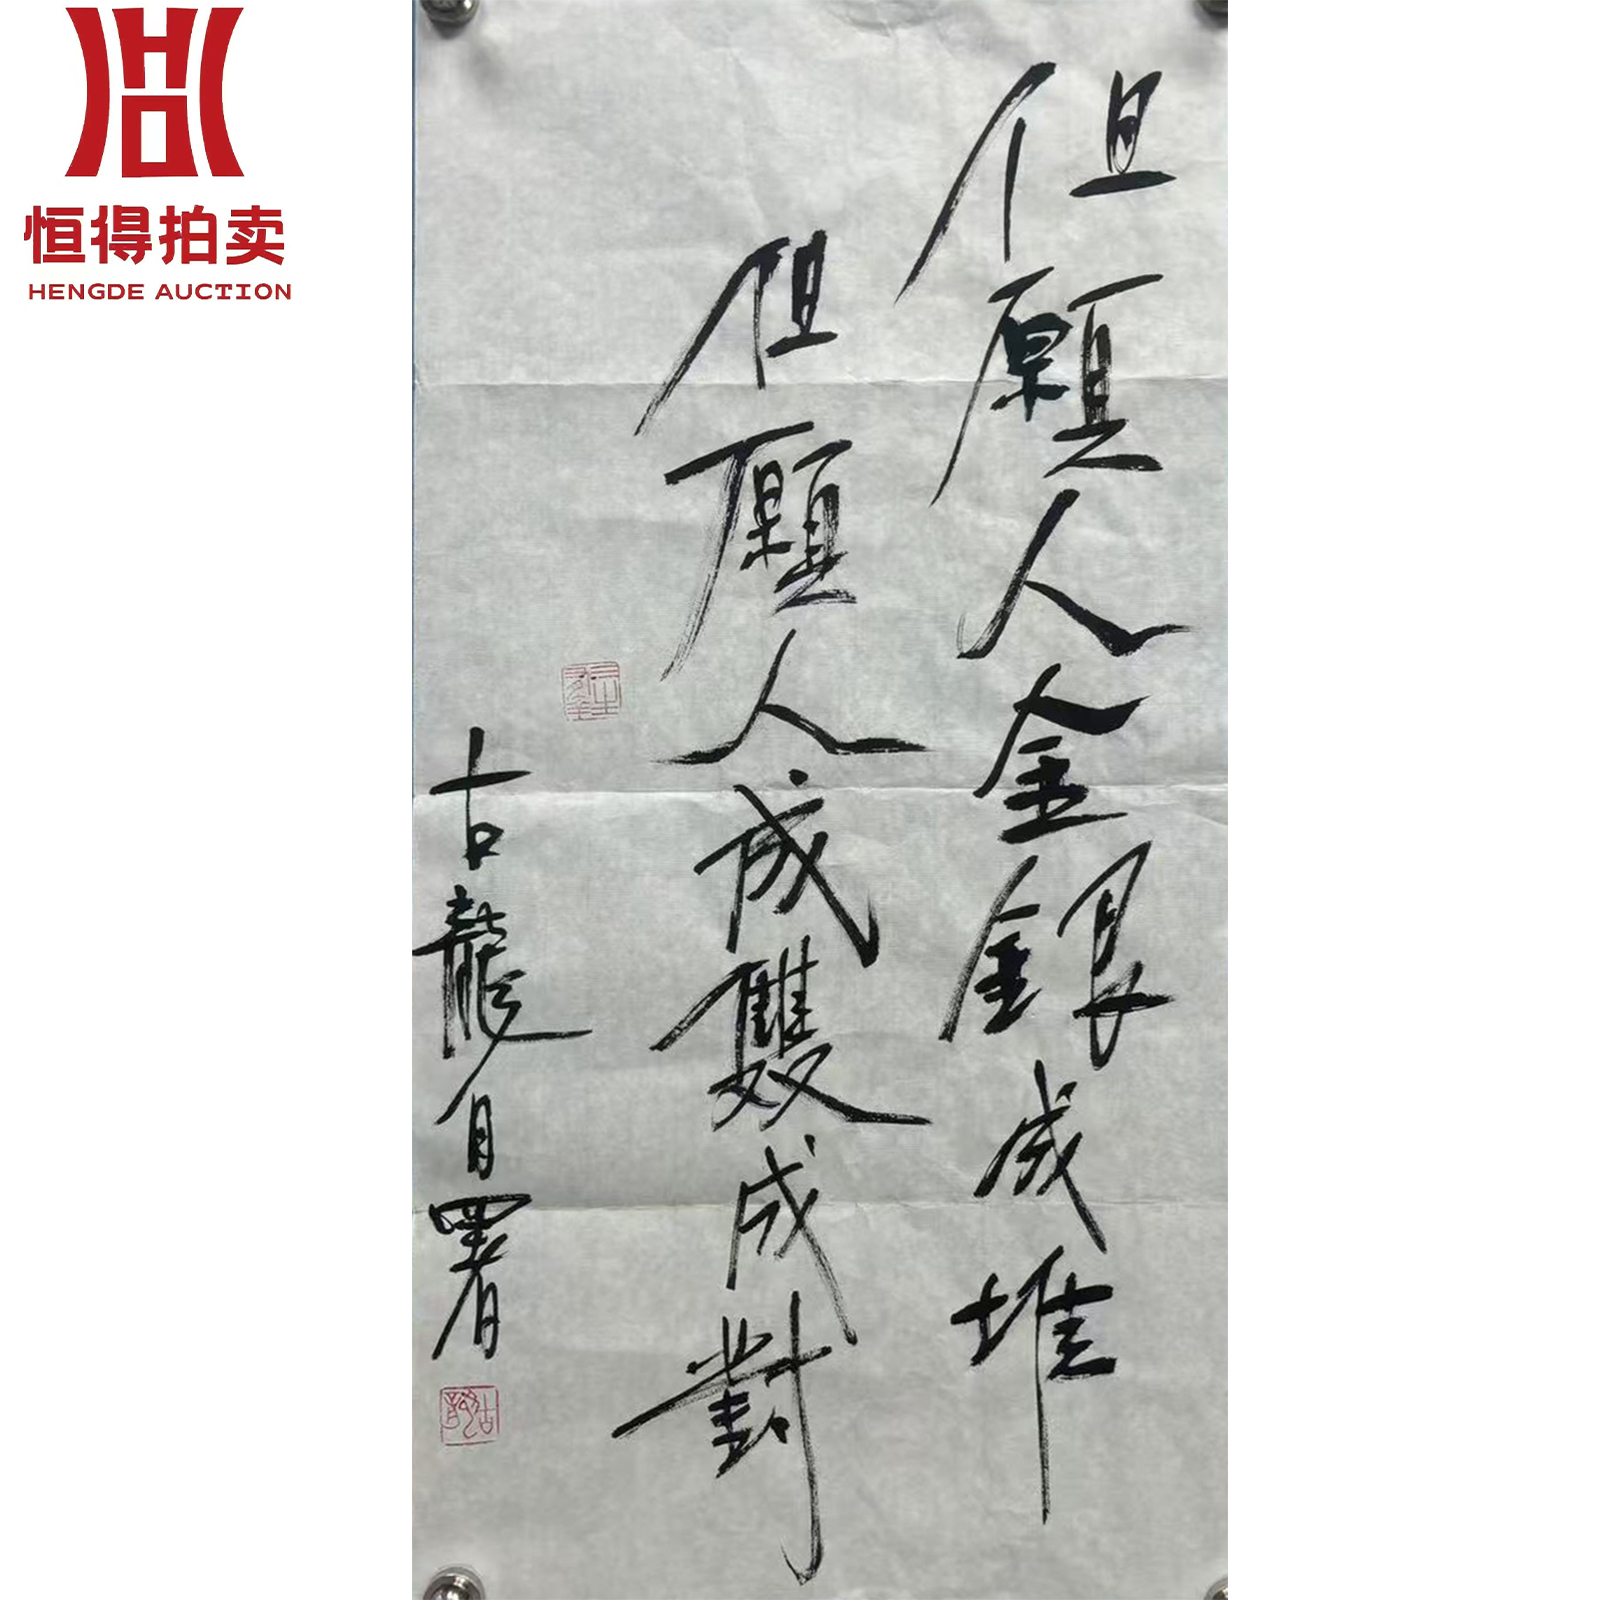 恒得拍卖
HENGDE AUCTION
但願人金銀成堆
但願人成雙成對
古龍自署
古龍